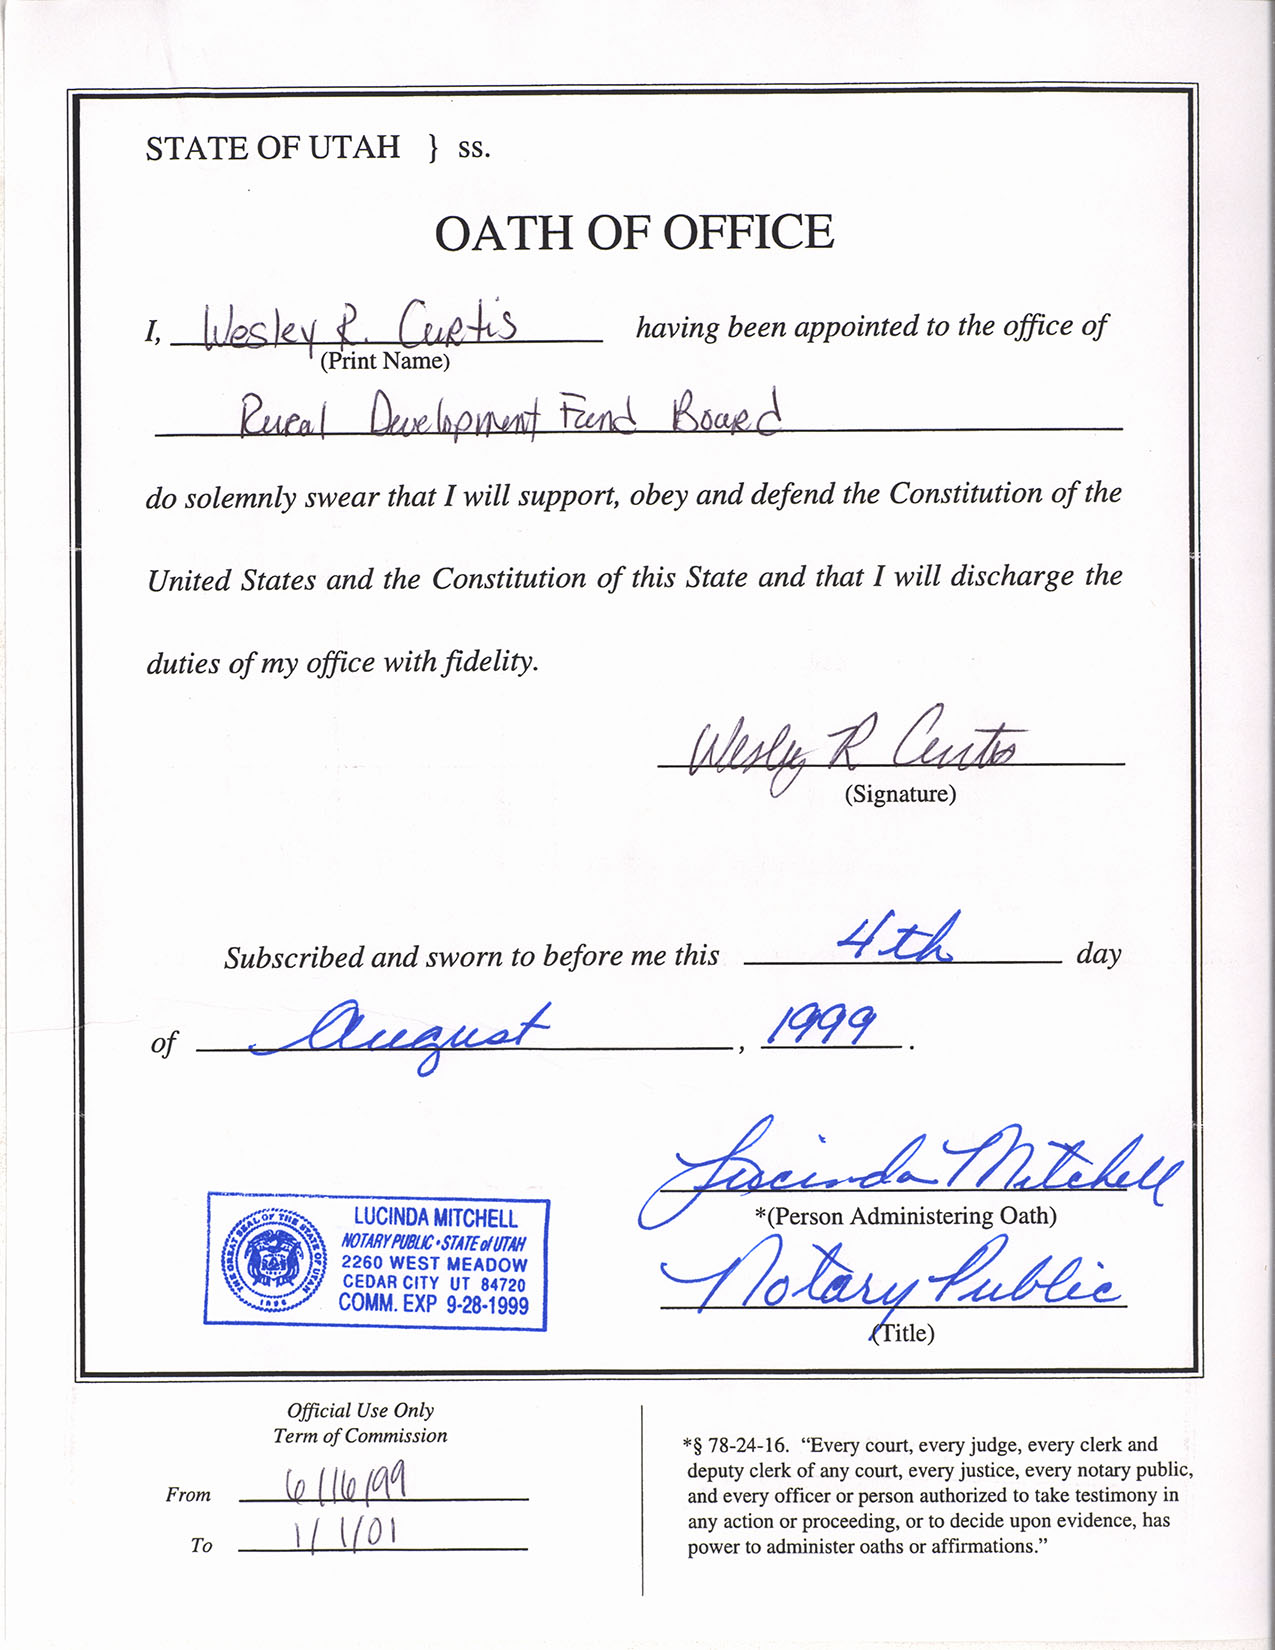 STATE OF UTAH } ss.
OATH OF OFFICE
I, Wesley R. Curtis having been appointed to the office of
(Print Name)
Rural Development Fund Board
do solemnly swear that I will support, obey and defend the Constitution of the
United States and the Constitution of this State and that I will discharge the
duties of my office with fidelity.
Wesley R Curtis
(Signature)
Subscribed and sworn to before me this 4th day
of August, 1999.
Lucinda Mitchell
*(Person Administering Oath)
Notary Public
(Title)
THE GREAT SEAL OF THE STATE OF UTAH
1896
LUCINDA MITCHELL
NOTARY PUBLIC • STATE of UTAH
2260 WEST MEADOW
CEDAR CITY UT 84720
COMM. EXP 9-28-1999
Official Use Only
Term of Commission
From 6/16/99
To 1/1/01
*§ 78-24-16. “Every court, every judge, every clerk and
deputy clerk of any court, every justice, every notary public,
and every officer or person authorized to take testimony in
any action or proceeding, or to decide upon evidence, has
power to administer oaths or affirmations.”